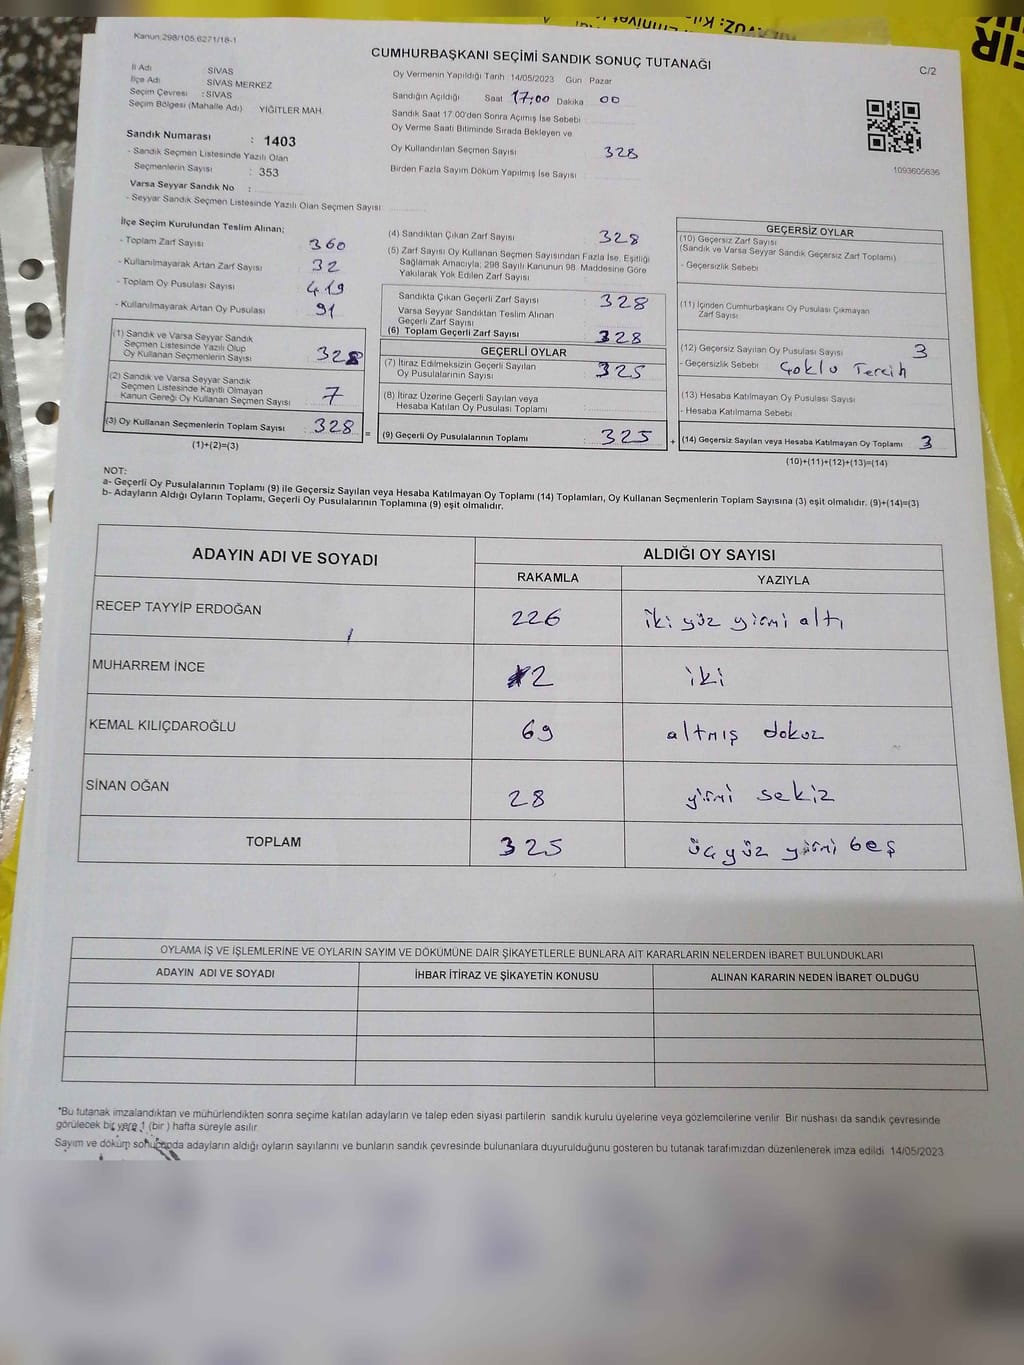 Kanun 298/105,6271/18-1
CUMHURBAŞKANI SEÇİMİ SANDIK SONUÇ TUTANAĞI
C/2
İl Adı : SİVAS
İlçe Adı : SİVAS MERKEZ
Seçim Çevresi : SİVAS
Seçim Bölgesi (Mahalle Adı) YİĞİTLER MAH.
Sandık Numarası : 1403
- Sandık Seçmen Listesinde Yazılı Olan
Seçmenlerin Sayısı : 353
Varsa Seyyar Sandık No :
- Seyyar Sandık Seçmen Listesinde Yazılı Olan Seçmen Sayısı
Oy Vermenin Yapıldığı Tarih 14/05/2023 Gün Pazar
Sandığın Açıldığı Saat 17:00 Dakika 00
Sandık Saat 17 00'den Sonra Açımış İse Sebebi
Oy Verme Saati Bitiminde Sırada Bekleyen ve
Oy Kullandırılan Seçmen Sayısı 328
Birden Fazla Sayım Döküm Yapılmış İse Sayısı
1093605636
İlçe Seçim Kurulundan Teslim Alınan;
- Toplam Zarf Sayısı 360
- Kullanılmayarak Artan Zarf Sayısı 32
- Toplam Oy Pusulası Sayısı 419
- Kullanılmayarak Artan Oy Pusulası 91
(1) Sandık ve Varsa Seyyar Sandık
Seçmen Listesinde Yazılı Olup
Oy Kullanan Seçmenlerin Sayısı 328
(2) Sandık ve Varsa Seyyar Sandık
Seçmen Listesinde Kayıtlı Olmayan
Kanun Gereği Oy Kullanan Seçmen Sayısı 7
(3) Oy Kullanan Seçmenlerin Toplam Sayısı : 328
(1)+(2)=(3)
(4) Sandıktan Çıkan Zarf Sayısı 328
(5) Zarf Sayısı Oy Kullanan Seçmen Sayısından Fazla İse, Eşitliği
Sağlamak Amacıyla; 298 Sayılı Kanunun 98. Maddesine Göre
Yakılarak Yok Edilen Zarf Sayısı
Sandıkta Çıkan Geçerli Zarf Sayısı : 328
Varsa Seyyar Sandıktan Teslim Alınan
Geçerli Zarf Sayısı
(6) Toplam Geçerli Zarf Sayısı 328
GEÇERLİ OYLAR
(7) İtiraz Edilmeksizin Geçerli Sayılan
Oy Pusulalarının Sayısı : 325
(8) İtiraz Üzerine Geçerli Sayılan veya
Hesaba Katılan Oy Pusulası Toplamı
= (9) Geçerli Oy Pusulalarının Toplamı : 325
GEÇERSİZ OYLAR
(10) Geçersiz Zarf Sayısı
(Sandık ve Varsa Seyyar Sandık Geçersiz Zarf Toplamı)
- Geçersizlik Sebebi
(11) İçinden Cumhurbaşkanı Oy Pusulası Çıkmayan
Zarf Sayısı
(12) Geçersiz Sayılan Oy Pusulası Sayısı 3
- Geçersizlik Sebebi Çoklu Tercih
(13) Hesaba Katılmayan Oy Pusulası Sayısı
- Hesaba Katılmama Sebebi
+ (14) Geçersiz Sayılan veya Hesaba Katılmayan Oy Toplamı 3
(10)+(11)+(12)+(13)=(14)
NOT:
a- Geçerli Oy Pusulalarının Toplamı (9) ile Geçersiz Sayılan veya Hesaba Katılmayan Oy Toplamı (14) Toplamları, Oy Kullanan Seçmenlerin Toplam Sayısına (3) eşit olmalıdır. (9)+(14)=(3)
b- Adayların Aldığı Oyların Toplamı, Geçerli Oy Pusulalarının Toplamına (9) eşit olmalıdır.
ADAYIN ADI VE SOYADI ALDIĞI OY SAYISI
RAKAMLA YAZIYLA
RECEP TAYYİP ERDOĞAN 226 iki yüz yirmi altı
MUHARREM İNCE 2 iki
KEMAL KILIÇDAROĞLU 69 altmış dokuz
SİNAN OĞAN 28 yirmi sekiz
TOPLAM 325 üç yüz yirmi beş
OYLAMA İŞ VE İŞLEMLERİNE VE OYLARIN SAYIM VE DÖKÜMÜNE DAİR ŞİKAYETLERLE BUNLARA AİT KARARLARIN NELERDEN İBARET BULUNDUKLARI
ADAYIN ADI VE SOYADI İHBAR İTİRAZ VE ŞİKAYETİN KONUSU ALINAN KARARIN NEDEN İBARET OLDUĞU
*Bu tutanak imzalandıktan ve mühürlendikten sonra seçime katılan adayların ve talep eden siyasi partilerin sandık kurulu üyelerine veya gözlemcilerine verilir. Bir nüshası da sandık çevresinde
görülecek bir yere 1 (bir) hafta süreyle asılır.
Sayım ve döküm sonucunda adayların aldığı oyların sayılarını ve bunların sandık çevresinde bulunanlara duyurulduğunu gösteren bu tutanak tarafımızdan düzenlenerek imza edildi. 14/05/2023